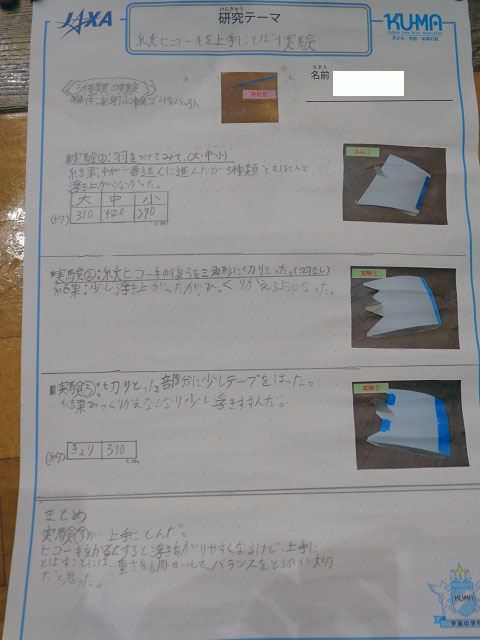 JAXA
けんきゅう
研究テーマ
KUMA
子ども・宇宙・未来の会
紙ヒコーキを上手にとばす実験
3種類の実験
発射台
なまえ
名前
■実験①:羽をつけてみて、(大・中・小)
結果:中が一番遠くに進んだが3種類ともほとんど
浮き上がらなかった。
大 中 小
310 420 390
cm
実験①
■実験②:紙ヒコーキの後ろを三角形に切りとった(羽なし)
結果:少し浮き上がったが、ひっくりかえるようになった。
実験②
■実験③:切りとった部分に少しテープをはった。
結果ひっくりかえらなくなり少し浮きすすんだ。
きょり 390
cm
実験③
まとめ
実験③が上手にとんだ。
ヒコーキをかるくすると浮きあがりやすくなるけど、上手に
とばすことには、重さを調せいして、バランスをとるのが大切
だと思った。
KUMA
宇宙の学校